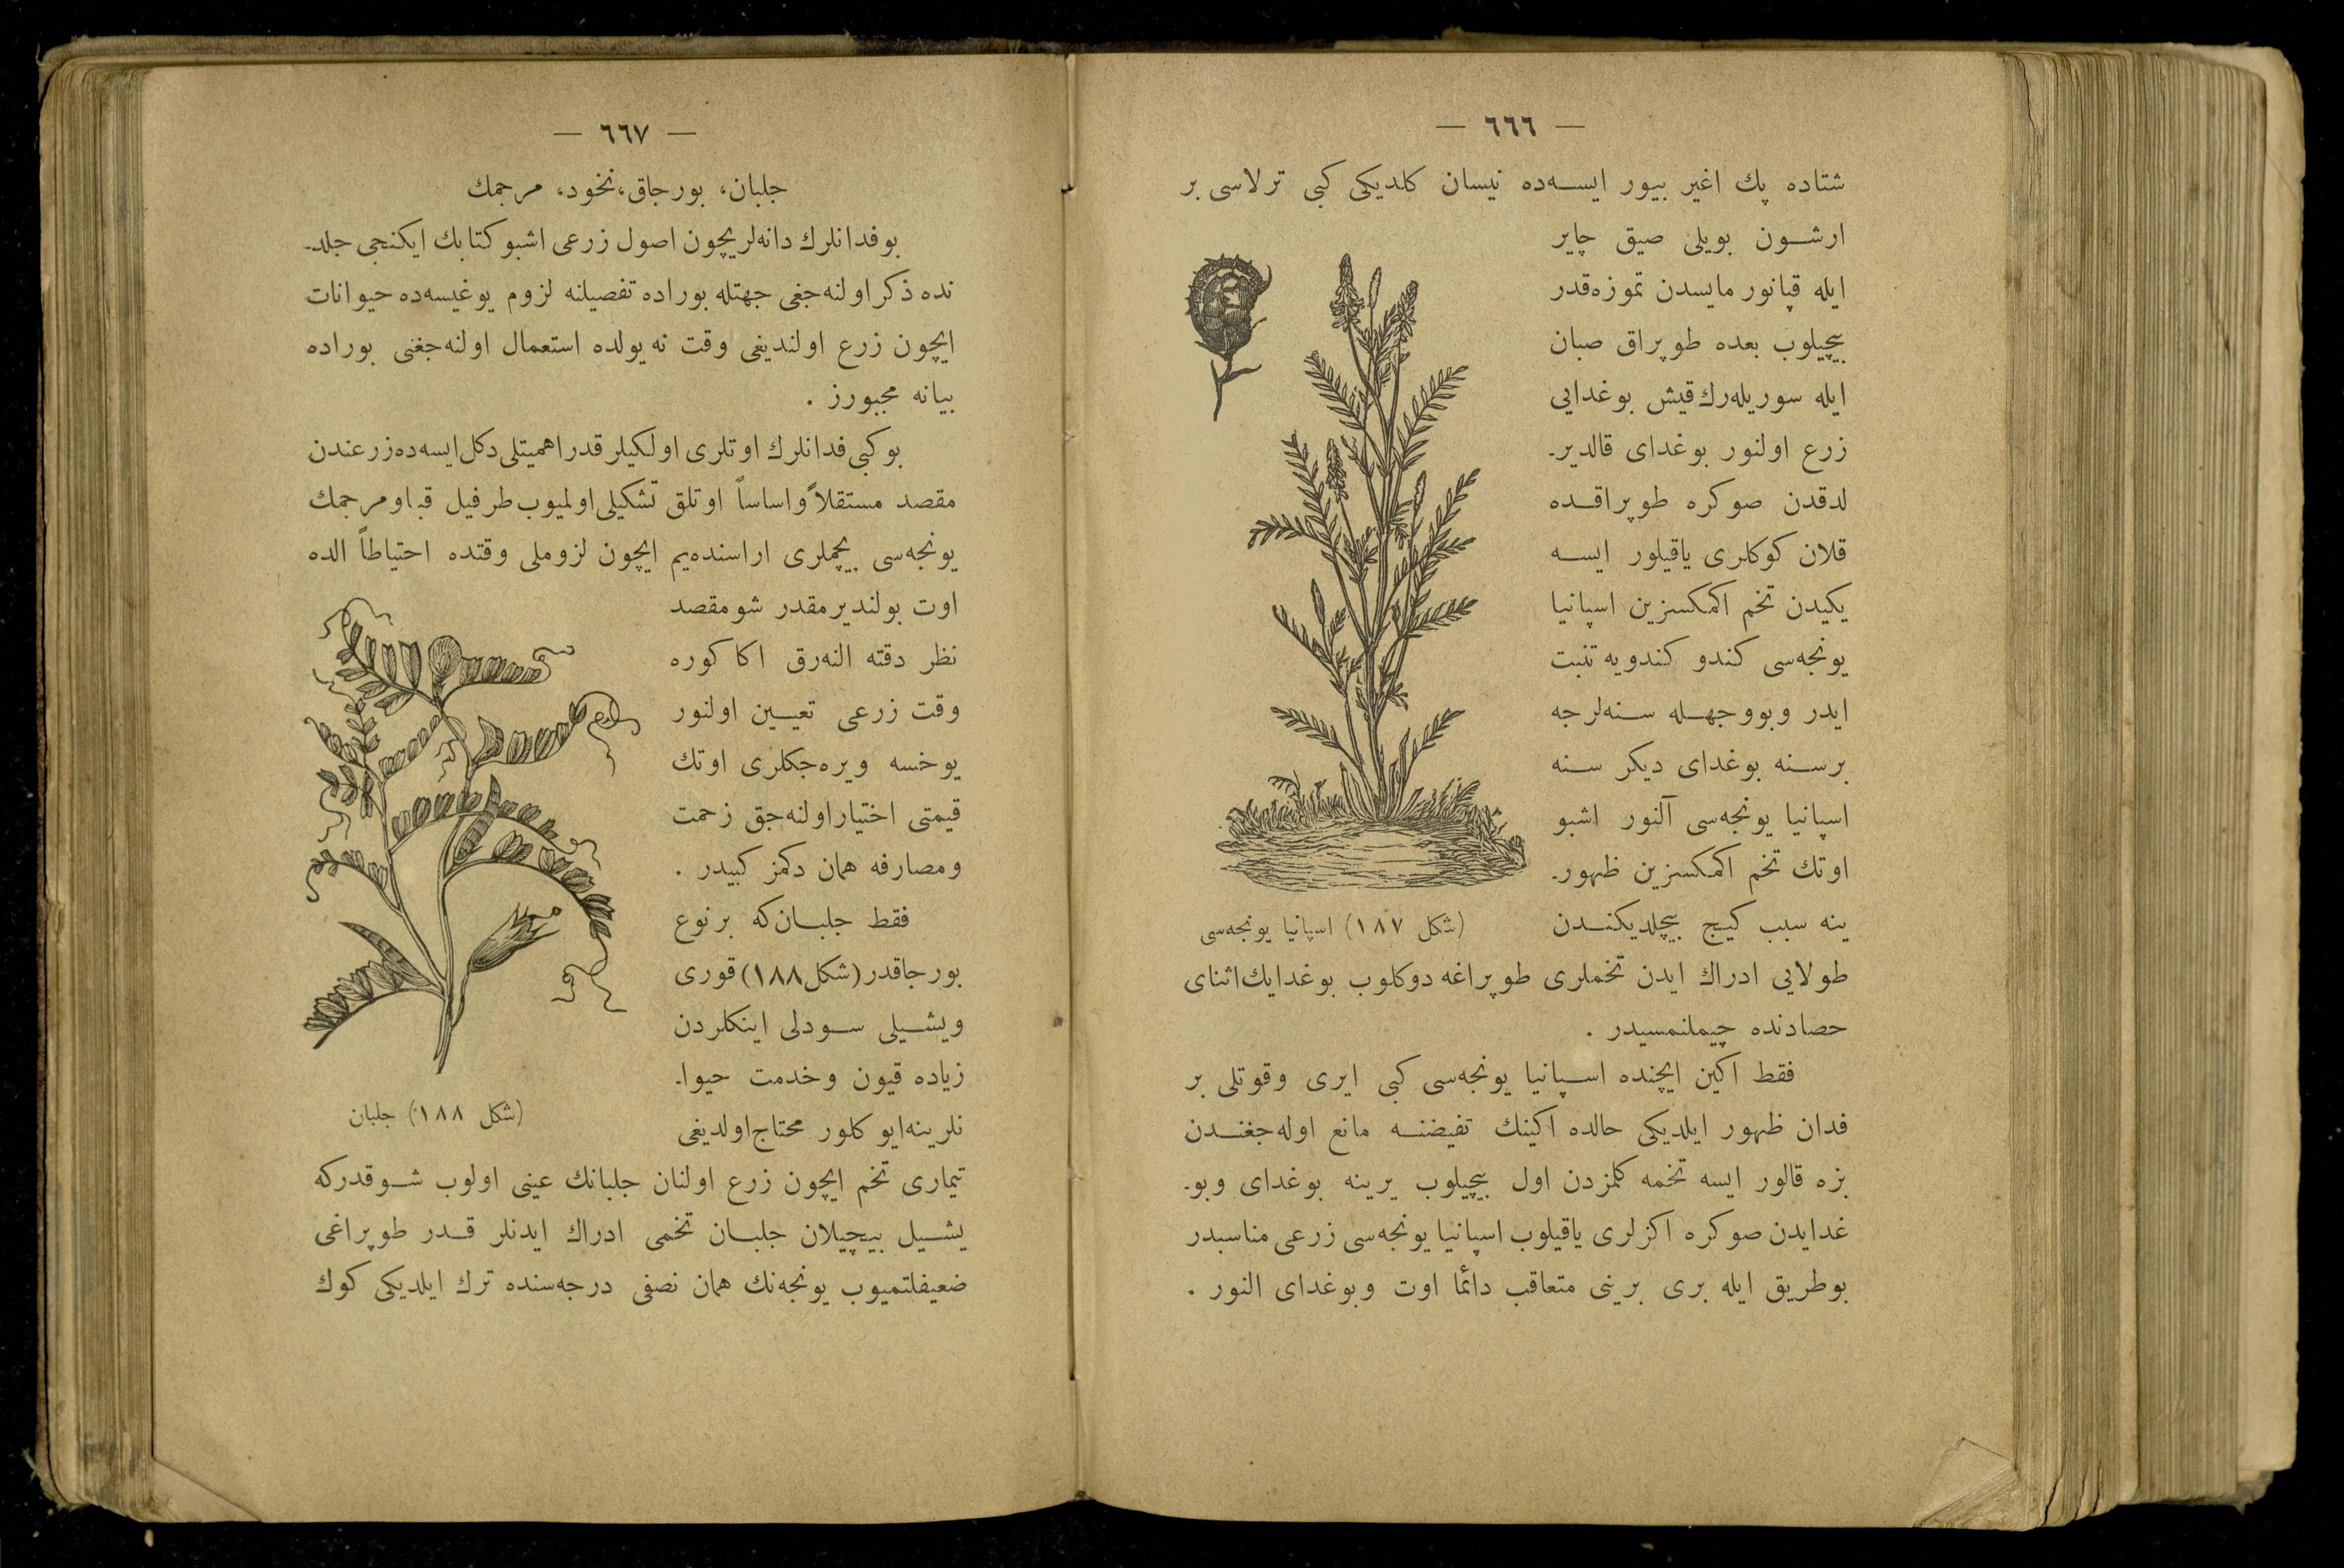 — ٦٦٦ —
شتاده پك اغير بيور ايسه‌ده نيسان كلديكی كبی ترلاسی بر
ارشون بويلی صيق چاير
ايله قپانور مايسدن تموزه‌قدر
بيچيلوب بعده طوپراق صبان
ايله سوريله‌رك قيش بوغدايی
زرع اولنور بوغدای قالدير-
لدقدن صوكره طوپراقده
قلان كوكلری ياقيلور ايسه
يكيدن تخم اكمكسزين اسپانيا
يونجه‌سی كندو كندويه تنبت
ايدر وبووجهله سنه‌لرجه
برسنه بوغدای ديكر سنه
اسپانيا يونجه‌سی آلنور اشبو
اوتك تخم اكمكسزين ظهور-
ينه سبب كيج بيچلديكندن
(شكل ١٨٧) اسپانيا يونجه‌سی
طولايی ادراك ايدن تخملری طوپراغه دوكلوب بوغدايك اثنای
حصادنده چيملنمسيدر .
فقط اكين ايچنده اسپانيا يونجه‌سی كبی ايری وقوتلی بر
فدان ظهور ايلديكی حالده اكينك تفيضنه مانع اوله‌جغندن
بزه قالور ايسه تخمه كلمزدن اول بيچيلوب يرينه بوغدای وبو-
غدايدن صوكره اكزلری ياقيلوب اسپانيا يونجه‌سی زرعی مناسبدر
بوطريق ايله بری برينی متعاقب دائما اوت وبوغدای النور .
— ٦٦٧ —
جلبان، بورجاق، نخود، مرجمك
بوفدانلرك دانه‌لريچون اصول زرعی اشبو كتابك ايكنجی جلد-
نده ذكر اولنه‌جغی جهتله بوراده تفصيلنه لزوم يوغيسه‌ده حيوانات
ايچون زرع اولنديغی وقت نه يولده استعمال اولنه‌جغنی بوراده
بيانه مجبورز .
بوكبی فدانلرك اوتلری اولكيلر قدر اهميتلی دكل ايسه‌ده زرعندن
مقصد مستقلاً واساساً اوتلق تشكيلی اولميوب طرفيل قبا ومرجمك
يونجه‌سی بيچملری اراسنده يم ايچون لزوملی وقتده احتياطاً الده
اوت بولنديرمقدر شو مقصد
نظر دقته النه‌رق اكا كوره
وقت زرعی تعيين اولنور
يوخسه ويره‌جكلری اوتك
قيمتی اختيار اولنه‌جق زحمت
ومصارفه همان دكمز كبيدر .
فقط جلبان‌كه برنوع
بورجاقدر (شكل ١٨٨) قوری
ويشيلی سودلی اينكلردن
زياده قيون وخدمت حيوا-
نلرينه ايو كلور محتاج اولديغی
(شكل ١٨٨) جلبان
تيماری تخم ايچون زرع اولنان جلبانك عينی اولوب شوقدركه
يشيل بيچيلان جلبان تخمی ادراك ايدنلر قدر طوپراغی
ضعيفلتميوب يونجه‌نك همان نصفی درجه‌سنده ترك ايلديكی كوك